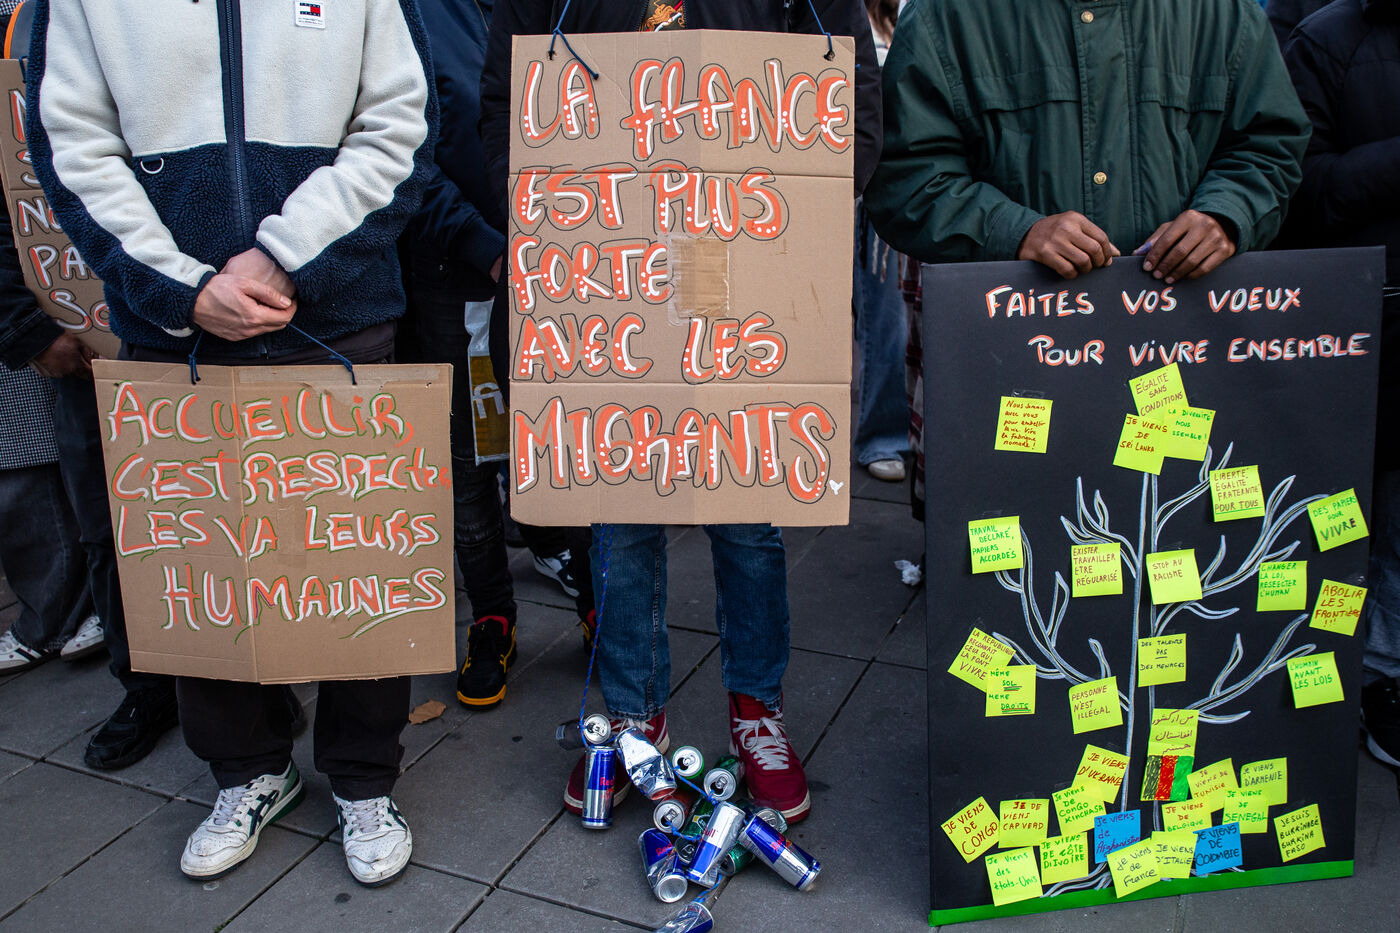 ACCUEILLIR,
C'EST RESPECTER
LES VA LEURS
HUMAINES
LA FRANCE
EST PLUS
FORTE
AVEC LES
MIGRANTS
FAITES VOS VOEUX
POUR VIVRE ENSEMBLE
ÉGALITÉ
SANS
CONDITIONS
Nous sommes
avec vous
pour embellir
la fabrique
nomade!
JE VIENS
DE
SRI LANKA
LA DIVERSITÉ
NOUS
SEMBLE!
LIBERTÉ
ÉGALITÉ
FRATERNITÉ
POUR TOUS
DES PAPIERS
POUR
VIVRE
TRAVAIL
DÉCLARÉ,
PAPIERS
ACCORDÉS
EXISTER
TRAVAILLER
ETRE
RÉGULARISÉ
STOP AU
RACISME
CHANGER
LA LOI,
RESPECTER
L'HUMAIN
ABOLIR
LES
FRONTIÈRES
!!!
LA RÉPUBLIQUE
RECONNAIT
CEUX QUI
LA FONT
VIVRE
MÊME
SOL
MÊME
DROITS
DES TALENTS
PAS
DES MENACES
L'HUMAIN
AVANT
LES LOIS
PERSONNE
N'EST
ILLEGAL
افغانستان
هستم
JE VIENS
D'UKRAINE
JE VIENS
DE
TUNISIE
JE VIENS
D'ARMENIE
JE VIENS
DE
CONGO
JE DE
VIENS
CAP VERD
JE VIENS
DE CONGO
KINCHASA
JE VIENS
DE
BELGIQUE
JE VIENS
DE
SENEGAL
JE SUIS
BURKINABE
BURKINA
FASO
Je viens
des
états-Unis
JE VIENS
DE CÔTE
D'IVOIRE
Je viens
de
Afghanistan
Je viens
de
France
JE VIENS
D'ITALIE
JE VIENS
DE
COLOMBIE